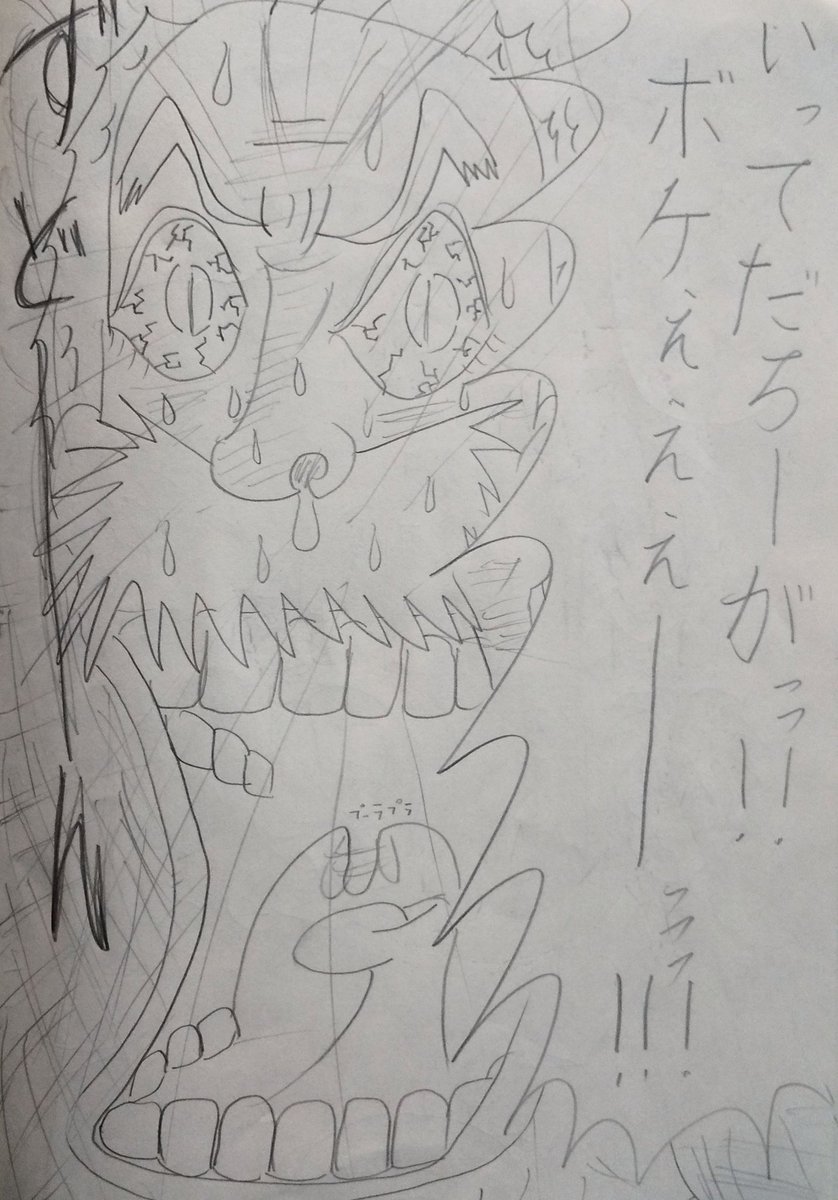 いってだろーがっっ!!
ボケぇぇぇーっっっ!!!
プーラプラ
ずどーん